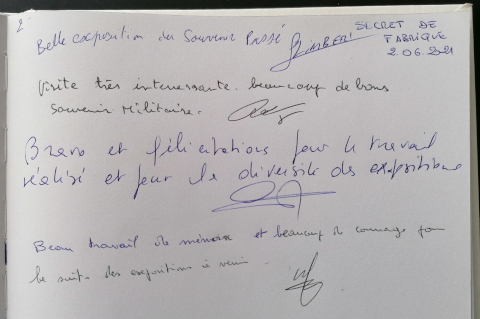 2
Belle exposition du Souvenir Passé
SECRET DE
FABRIQUE
2.06.2021
Visite très interessante. beaucoup de bons
souvenir Militaire.
Bravo et félicitations pour le travail
réalisé et pour la diversité des expositions
Beau travail de mémoire et beaucoup de courage pour
la suite des expositions à venir.